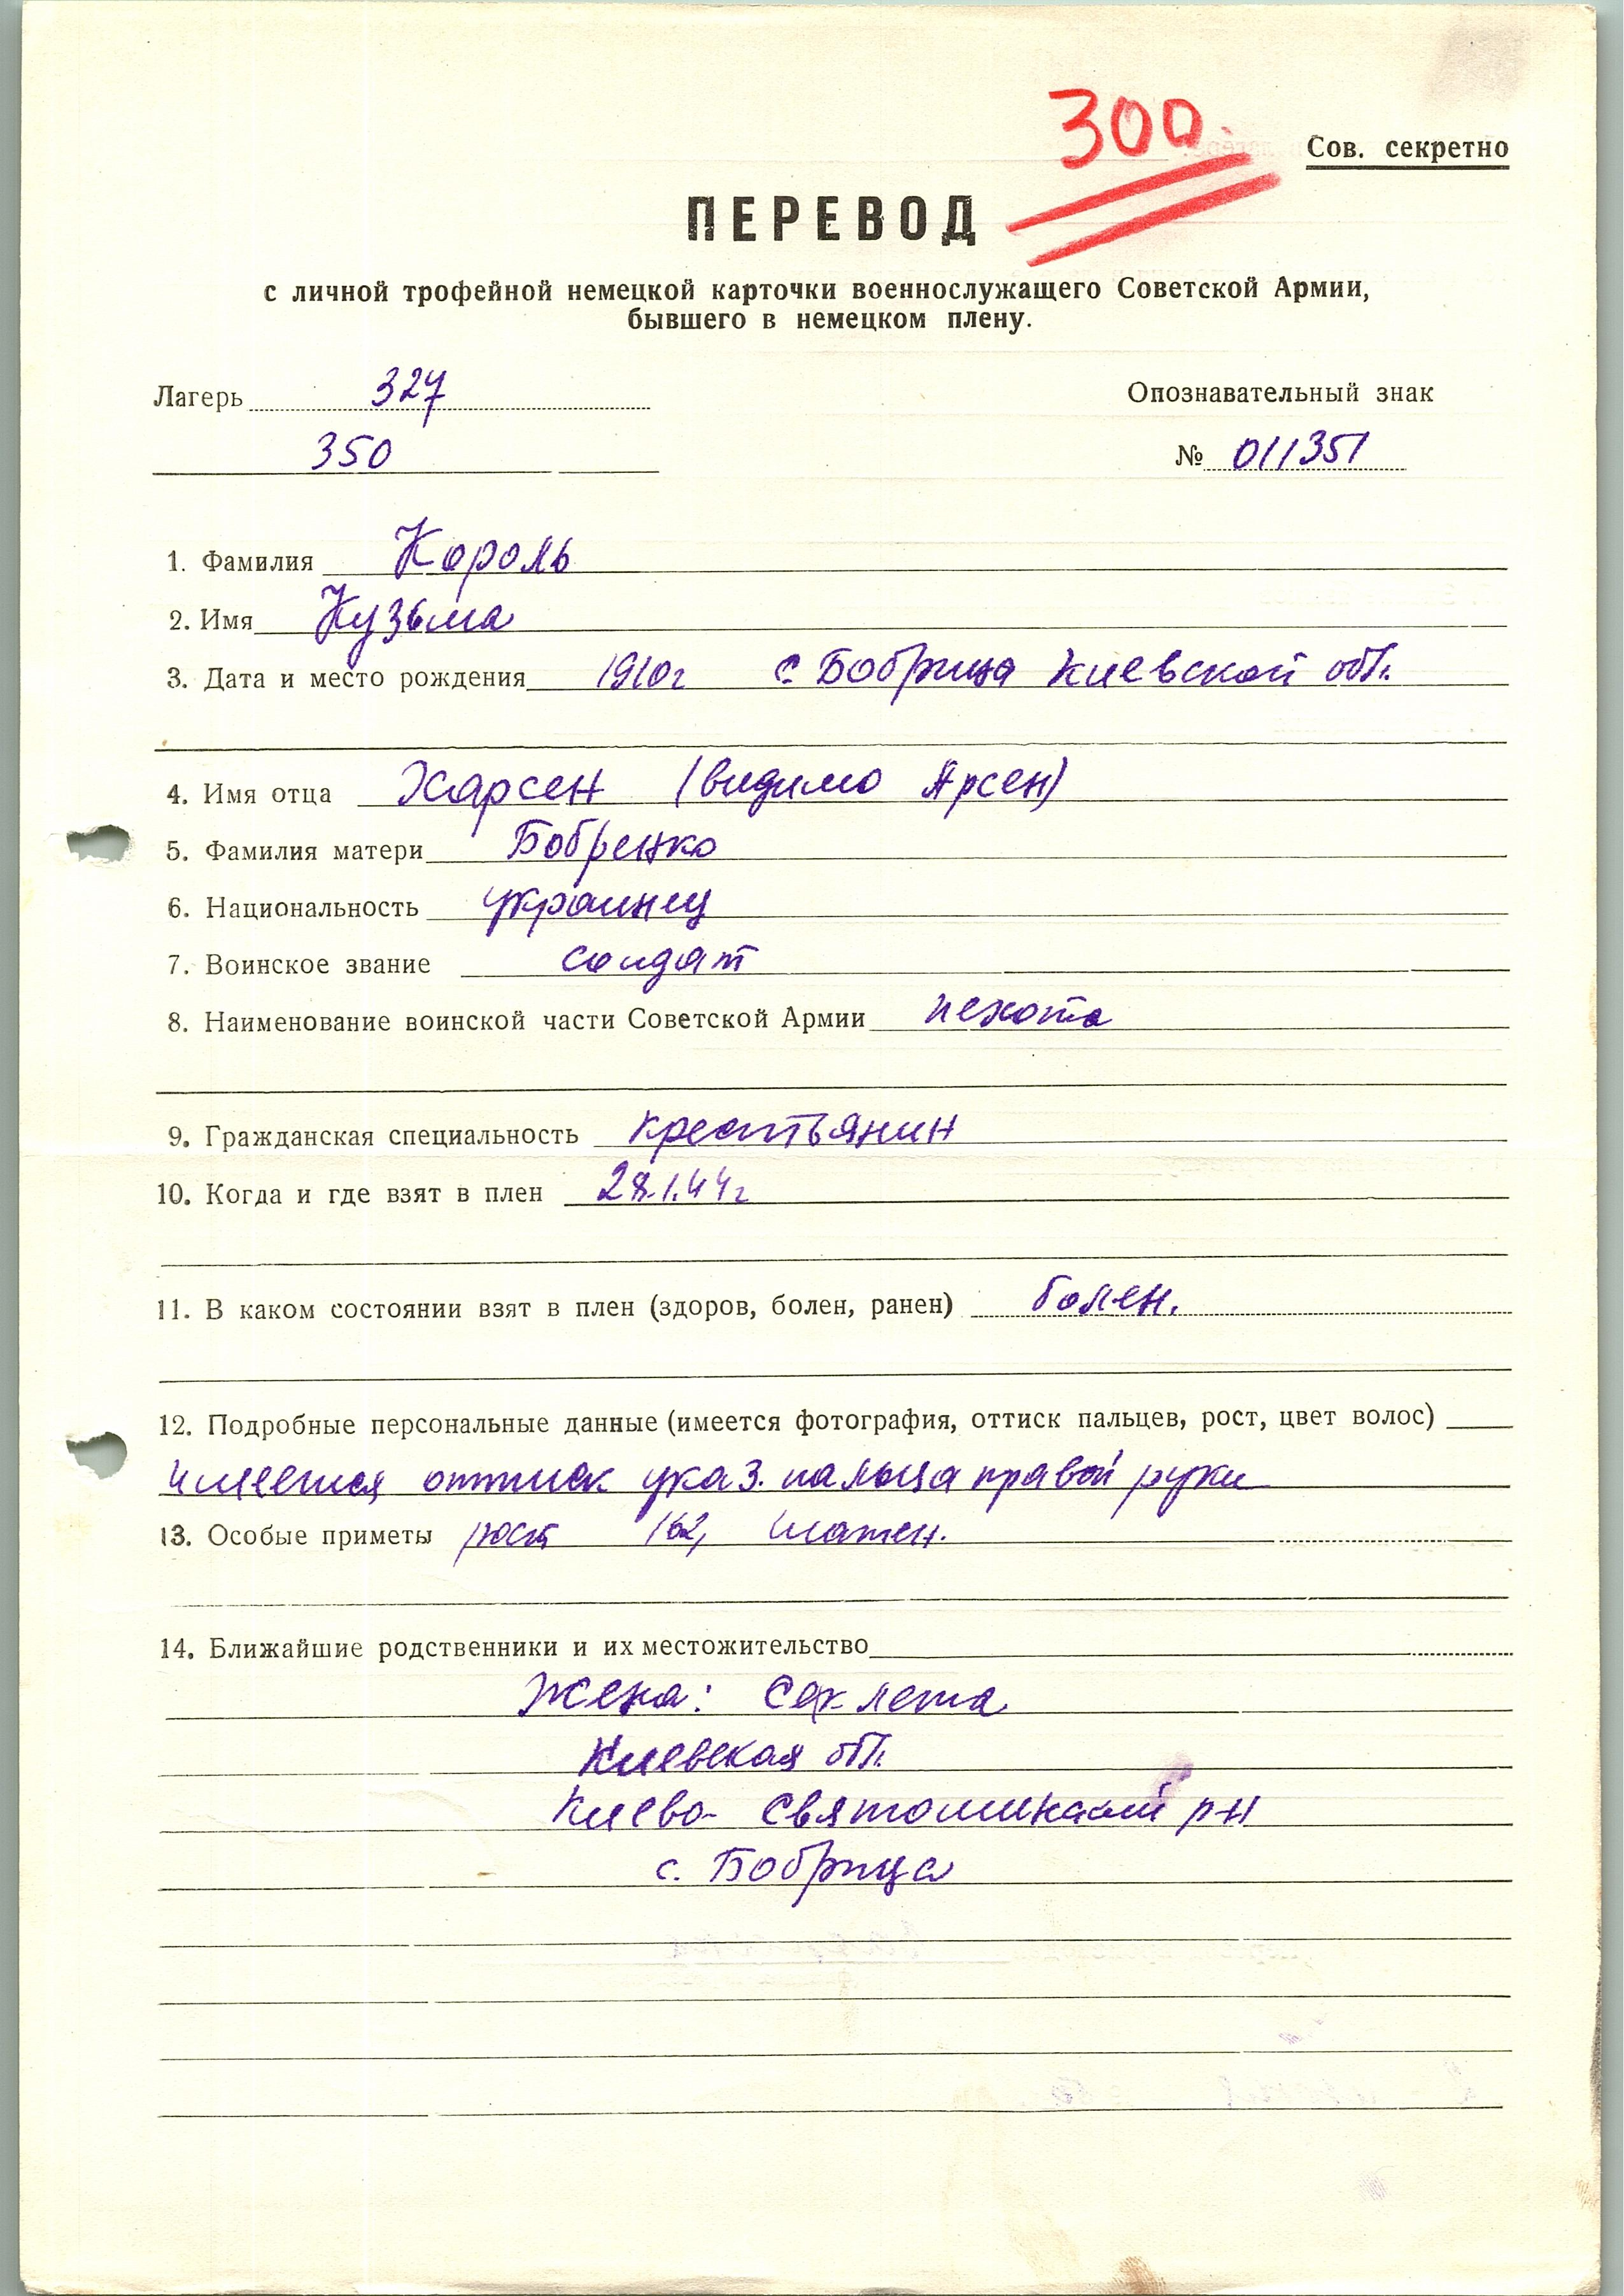 300
Сов. секретно
ПЕРЕВОД
с личной трофейной немецкой карточки военнослужащего Советской Армии,
бывшего в немецком плену.
Лагерь 327
Опознавательный знак
350
№ 011351
1. Фамилия Король
2. Имя Кузьма
3. Дата и место рождения 1910г с. Бобрица Киевской обл.
4. Имя отца Харсен (видимо Арсен)
5. Фамилия матери Бобренко
6. Национальность украинец
7. Воинское звание солдат
8. Наименование воинской части Советской Армии пехота
9. Гражданская специальность крестьянин
10. Когда и где взят в плен 28.1.44г
11. В каком состоянии взят в плен (здоров, болен, ранен) болен.
12. Подробные персональные данные (имеется фотография, оттиск пальцев, рост, цвет волос)
имеется оттиск указ. пальца правой руки
13. Особые приметы рост 162, шатен.
14. Ближайшие родственники и их местожительство
Жена: Секлета
Киевская обл.
Киево- Святошинский р-н
с. Бобрица